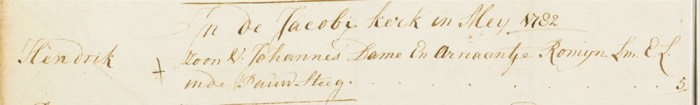 In de Jacoby kerk in Mey 1782
Hendrik + zoon V. Johannes Dame En Arnaantje Romyn Lm. E. L.
inde Pauw Steeg. . . . . . . . . . 5